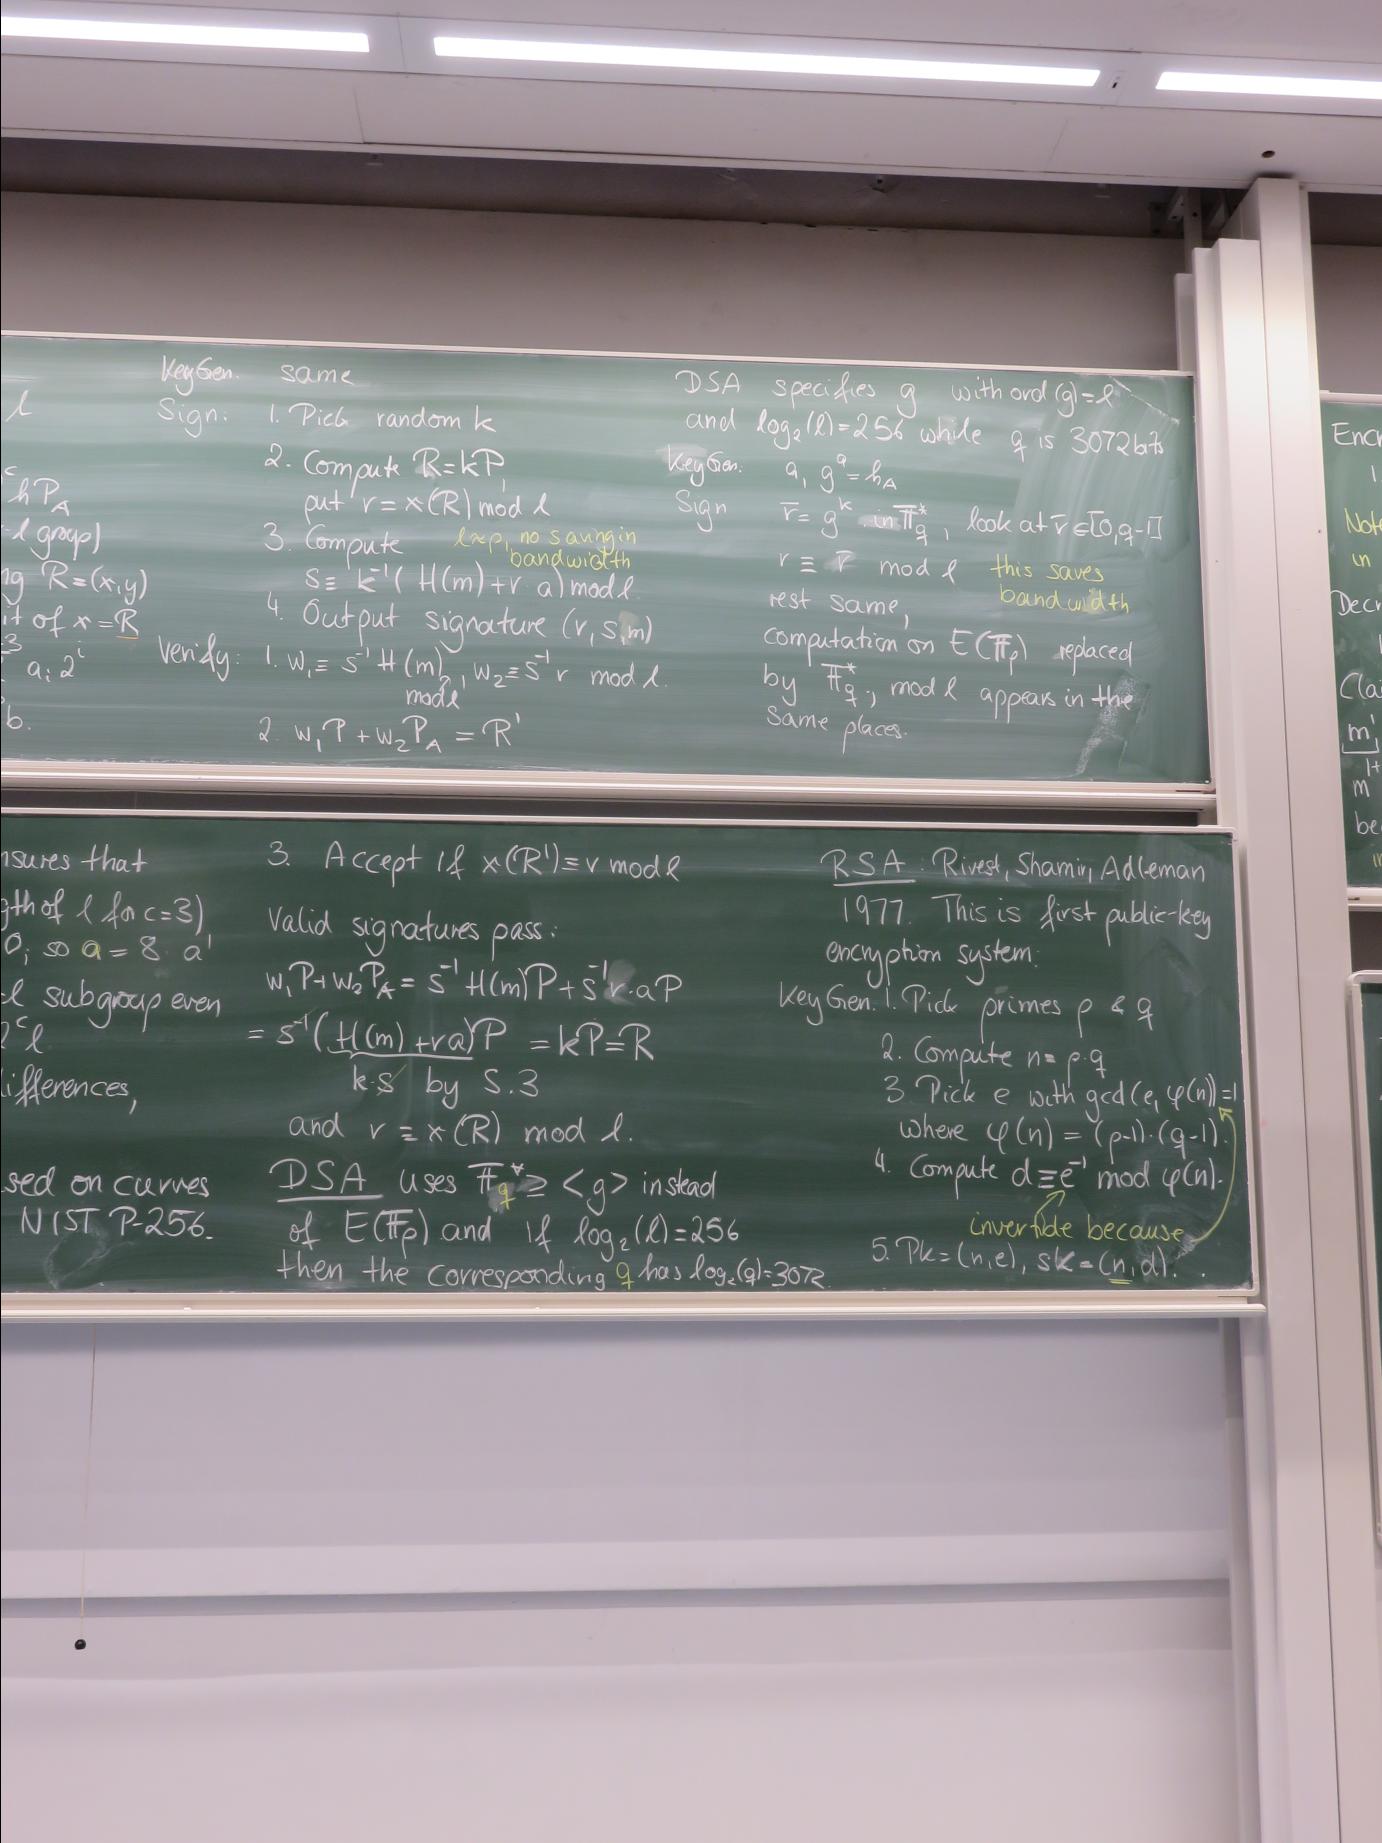 l
hP_A
-l group)
ng R=(x,y)
it of x = R
a_i 2^i
b.
KeyGen. same
Sign: 1. Pick random k
2. Compute R=kP,
put r = x(R) mod l
3. Compute l≈p, no saving in
bandwidth
s ≡ k^-1 ( H(m)+r a) mod l.
4. Output signature (r,s,m)
Verify: 1. w_1 ≡ s^-1 H(m), w_2 ≡ s^-1 r mod l.
mod l
2. w_1P + w_2P_A = R'
DSA specifies g with ord(g)=l
and log_2(l)=256 while q is 3072bits
KeyGen: a, g^a = h_A
Sign r̄ = g^k in 𝔽_q^*, look at r̄ ∈[0,q-1]
r ≡ r̄ mod l this saves
bandwidth
rest same,
computation on E(𝔽_p) replaced
by 𝔽_q^*; mod l appears in the
same places.
nsures that
gth of l for c=3)
0; so a = 8. a'
l subgroup even
2^c l
ifferences,
sed on curves
NIST P-256.
3. Accept if x(R')≡r mod l
Valid signatures pass:
w_1P+w_2P_A = s^-1 H(m)P+s^-1 r·aP
= s^-1 (H(m) +ra)P = kP=R
k·s by S.3
and r ≡ x(R) mod l.
DSA uses 𝔽_q^* ≥ <g> instead
of E(𝔽_p) and if log_2(l)=256
then the corresponding q has log_2(q)=3072.
RSA: Rivest, Shamir, Adleman
1977. This is first public-key
encryption system:
KeyGen. 1. Pick primes p & q
2. Compute n= p·q
3. Pick e with gcd(e, φ(n))=1
where φ(n) = (p-1)·(q-1).
4. Compute d≡e^-1 mod φ(n).
invertible because
5. Pk=(n,e), sk=(n,d).
Encr
1.
Note
in
Decr
Clai
m'
1+
m
be